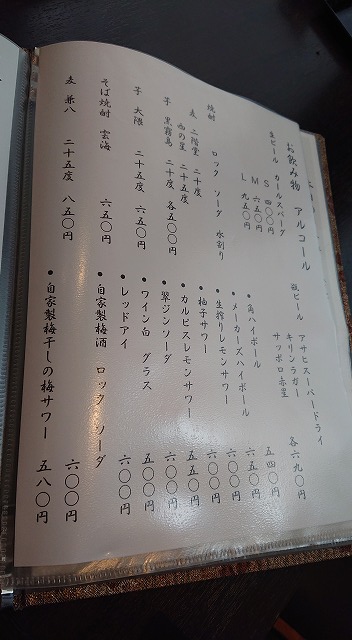 お飲み物 アルコール
生ビール カールスバーグ
S 四〇〇円
M 六五〇円
L 九五〇円
瓶ビール アサヒスーパードライ
キリンラガー
サッポロ赤星
各六九〇円
焼酎 ロック ソーダ 水割り
麦 二階堂 二十度
西の星 二十度
芋 黒霧島 二十度 各五〇〇円
芋 大隅 二十五度 六五〇円
そば焼酎 雲海 六五〇円
麦 兼八 二十五度 八五〇円
•角ハイボール 五四〇円
•メーカーズハイボール 六五〇円
•生搾りレモンサワー 六〇〇円
•柚子サワー 六〇〇円
•カルピスレモンサワー 五五〇円
•翠ジンソーダ 六〇〇円
•ワイン白 グラス 五〇〇円
•レッドアイ 六〇〇円
•自家製梅酒 ロック ソーダ 六〇〇円
•自家製梅干しの梅サワー 五八〇円